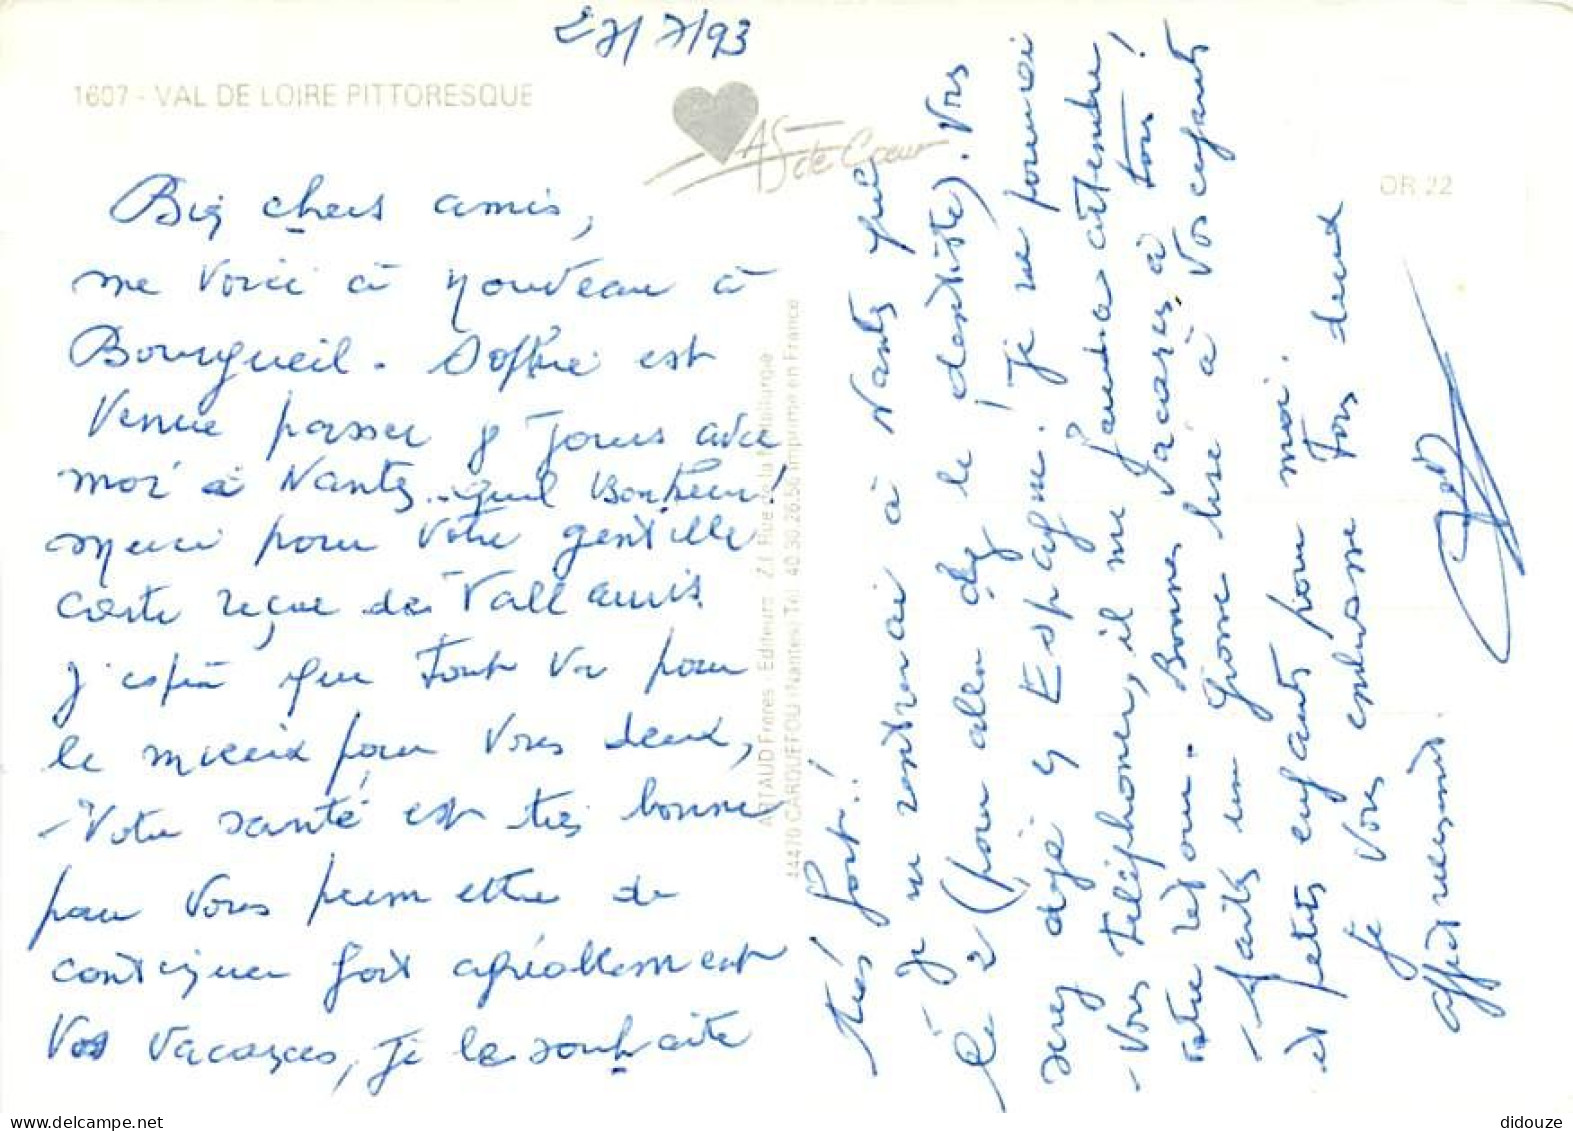 27/7/93
1607 - VAL DE LOIRE PITTORESQUE
AS de Cœur
OR 22
Bien chers amis,
me voici à nouveau à
Bourgueil. Sophie est
venue passer 8 jours avec
moi à Nantes... quel bonheur!
merci pour votre gentille
carte reçue de Vallauris
J'espère que tout va pour
le mieux pour vous deux,
- Votre santé est très bonne
pour vous permettre de
continuer fort agréablement
vos vacances, je le souhaite
ARTAUD Frères - Editeurs - Z.I. Rue de la Métallurgie
44470 CARQUEFOU (Nantes) Tél. 40.30.26.56 Imprimé en France
très fort!!
- je ne rentrerai à Nantes que
le 2 (pour aller chez le dentiste). Vous
serez déjà en Espagne. Je ne pourrai
- vous téléphoner, il me faudra attendre
votre retour. Bonnes vacances à tous!
- Faites une grosse bise à vos enfants
et petits enfants pour moi.
Je vous embrasse tous deux
affectueusement.
didouze